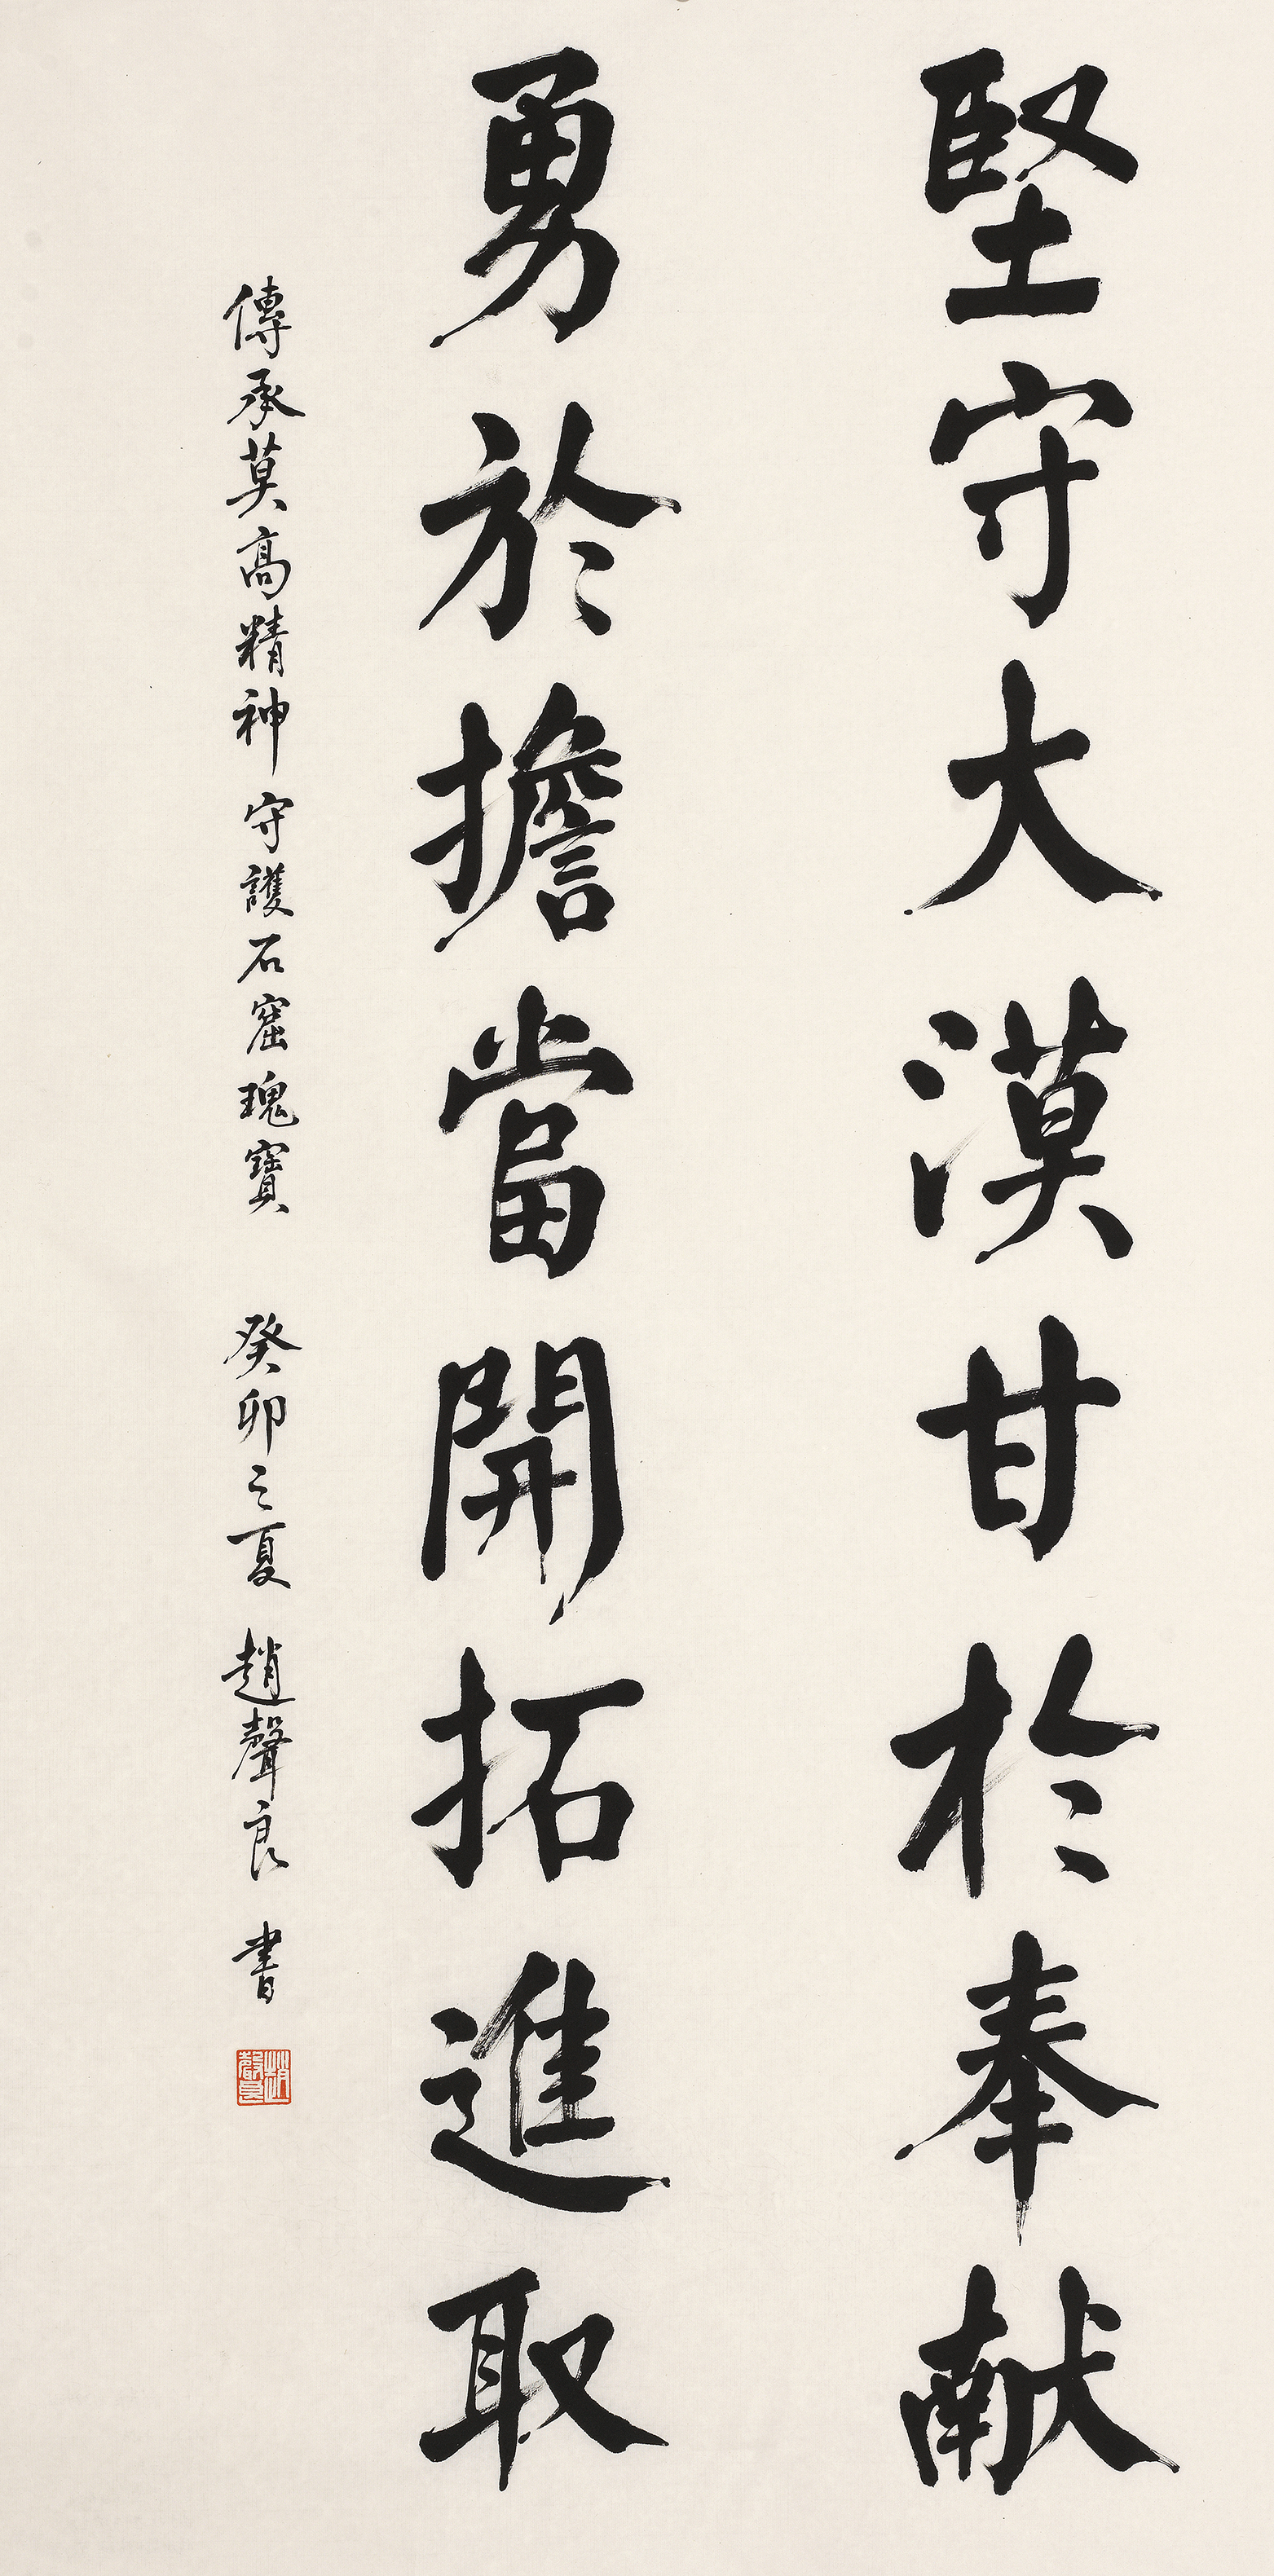 堅守大漠甘於奉献
勇於擔當開拓進取
傳承莫高精神守護石窟瑰寶 癸卯之夏 趙聲良 書
趙聲良